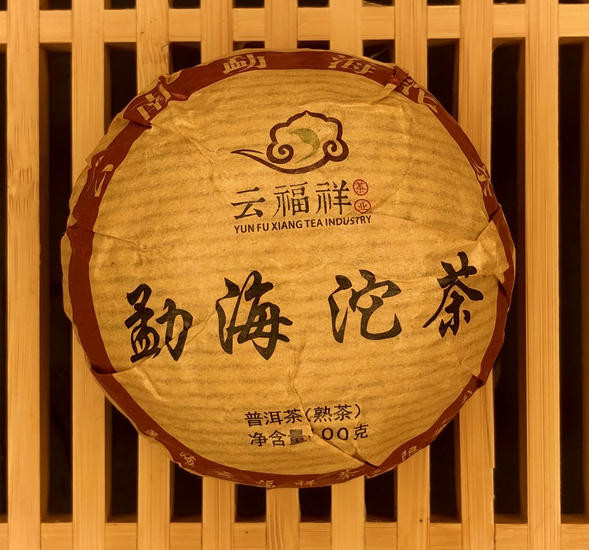 南勐海沱茶
云福祥茶业
YUN FU XIANG TEA INDUSTRY
勐海沱茶
普洱茶(熟茶)
净含量100克